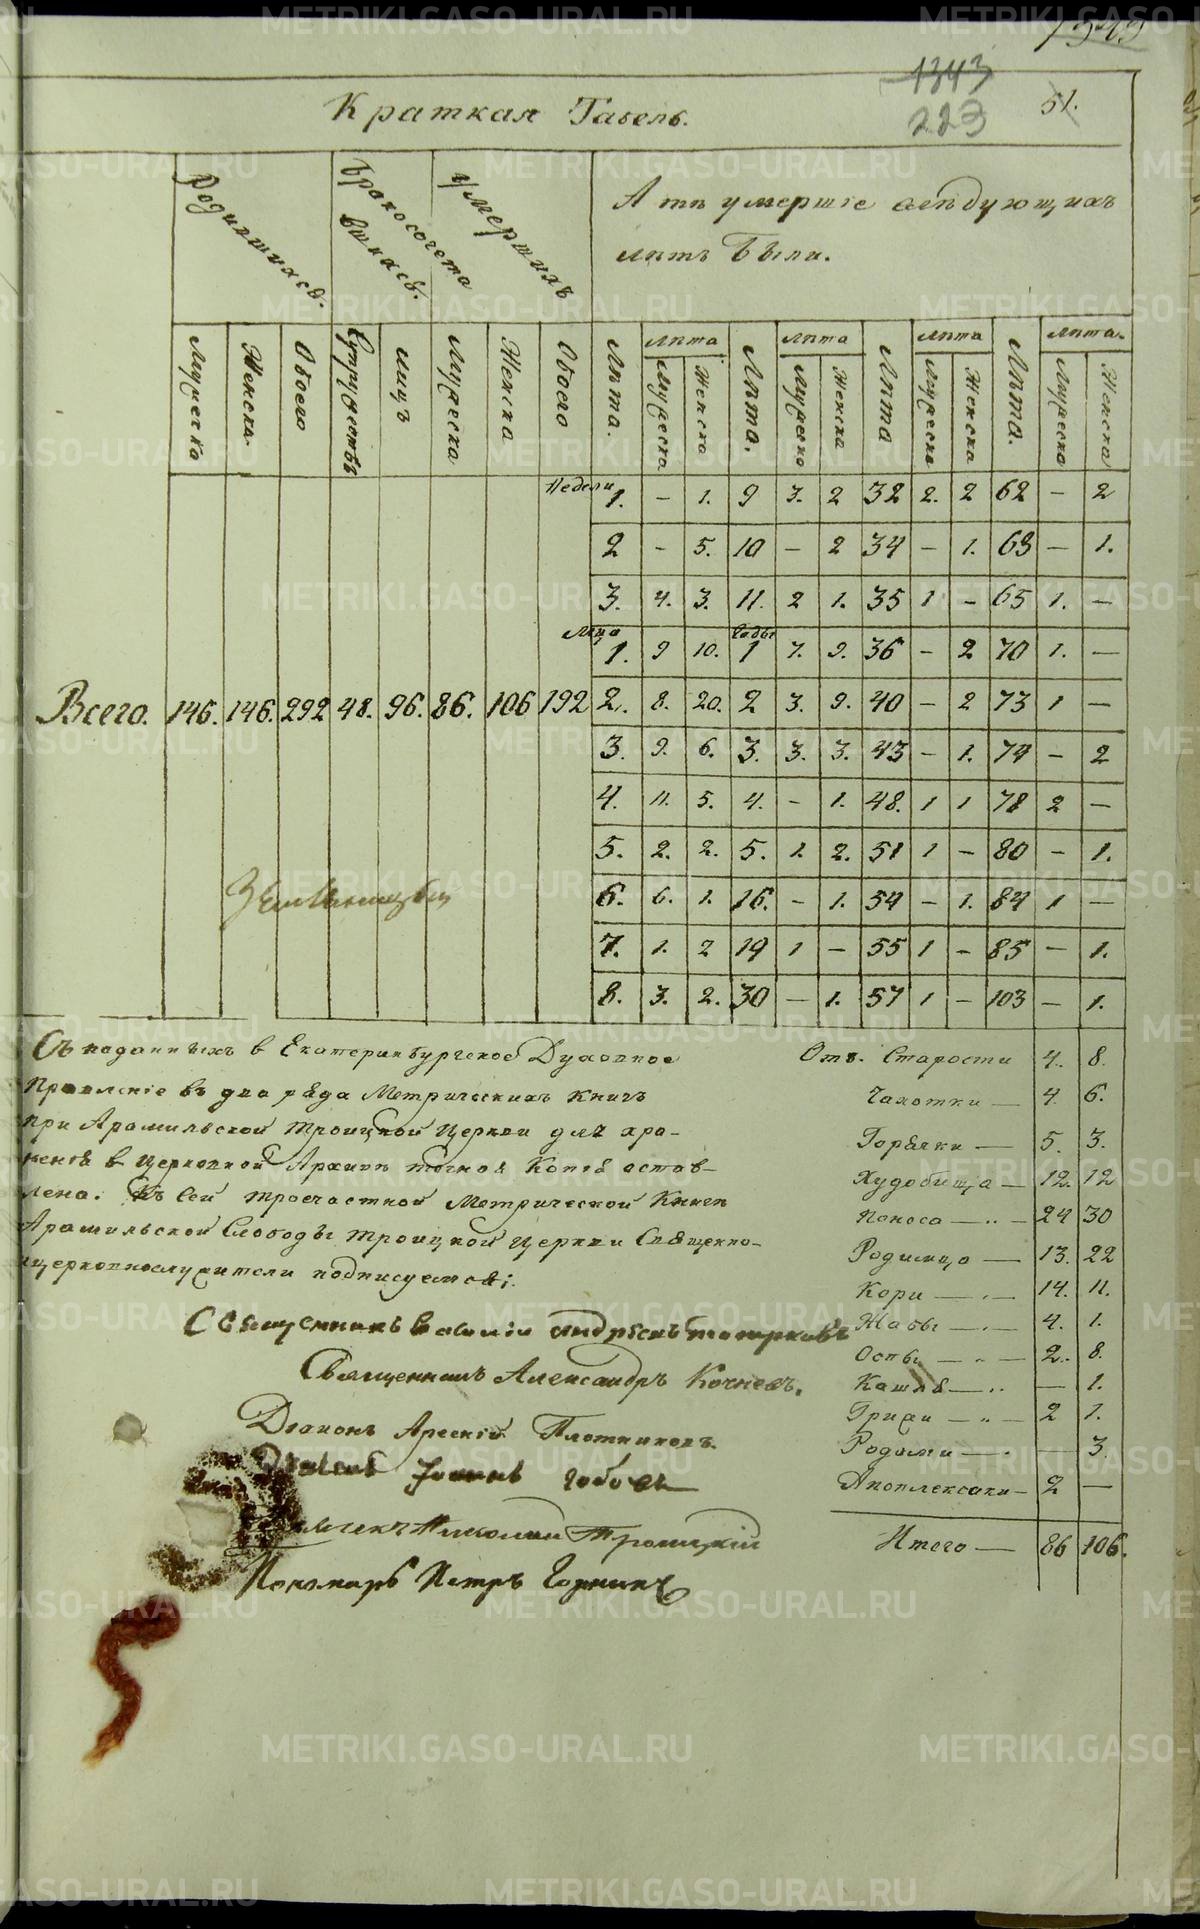 1343
1343
223
51.
Краткая Табель.
Родившихся.
Бракосочета
вшихся.
умершихъ
А тѣ умершіе слѣдующихъ
лѣтъ были.
Мужеска
Женска
Обоего
Супружествъ
лицъ
Мужеска
Женска
Обоего
Лѣта.
лѣта
Мужеска
Женска
Лѣта.
лѣта
Мужеска
Женска
Лѣта
лѣта
Мужеска
Женска
Лѣта.
лѣта.
Мужеска
Женска
Недели 1. – 1. 9 3. 2 32 2. 2 62 – 2
2 – 5. 10 – 2 34 – 1. 63 – 1.
3. 4. 3. 11. 2 1. 35 1 – 65 1. –
Мца 1. 9 10. Годы 1 7. 9. 36 – 2 70 1. –
Всего. 146. 146. 292 48. 96. 86. 106 192 2. 8. 20. 2 3. 9. 40 – 2 73 1 –
3. 9. 6. 3. 3. 3. 43 – 1. 74 – 2
4. 11. 5. 4. – 1. 48. 1 1 78 2 –
5. 2. 2. 5. 1. 2. 51 1 – 80 – 1.
6. 6. 1. 16. – 1. 54 – 1. 84 1 –
7. 1. 2 19 1 – 55 1 – 85 – 1.
8. 3. 2. 30 – 1. 57 1 – 103 – 1.
Съ поданныхъ в Екатеринбургское Духовное
Правленіе въ два ряда Метрическихъ книгъ
при Арамильской Троицкой Церкви для хра-
ненія в Церковной Архивѣ точная Копія остав-
лена. Къ сей троечастной Метрической Книгѣ
Арамильской Слободы Троицкой Церкви Священно-
церковнослужители подписуемся:
Священникъ Василій
Священникъ Александръ Кочневъ.
Діаконъ Арсеній Плотниковъ.
Іоаннъ
Николай Троицкій
Пономарь Петръ
Отъ. Старости 4. 8.
Чахотки — 4 6.
Горячки — 5. 3.
Худобища — 12. 12
Поноса — „ — 24 30
Родимца — 13. 22
Кори — „ — 14. 11.
Жабы — „ — 4. 1.
Оспы — „ — 2. 8.
Кашля — „ — 1.
Грижи — „ — 2 1.
Родами — „ — 3.
Апоплексіи — 2 —
Итого — 86 106.
METRIKI.GASO-URAL.RU